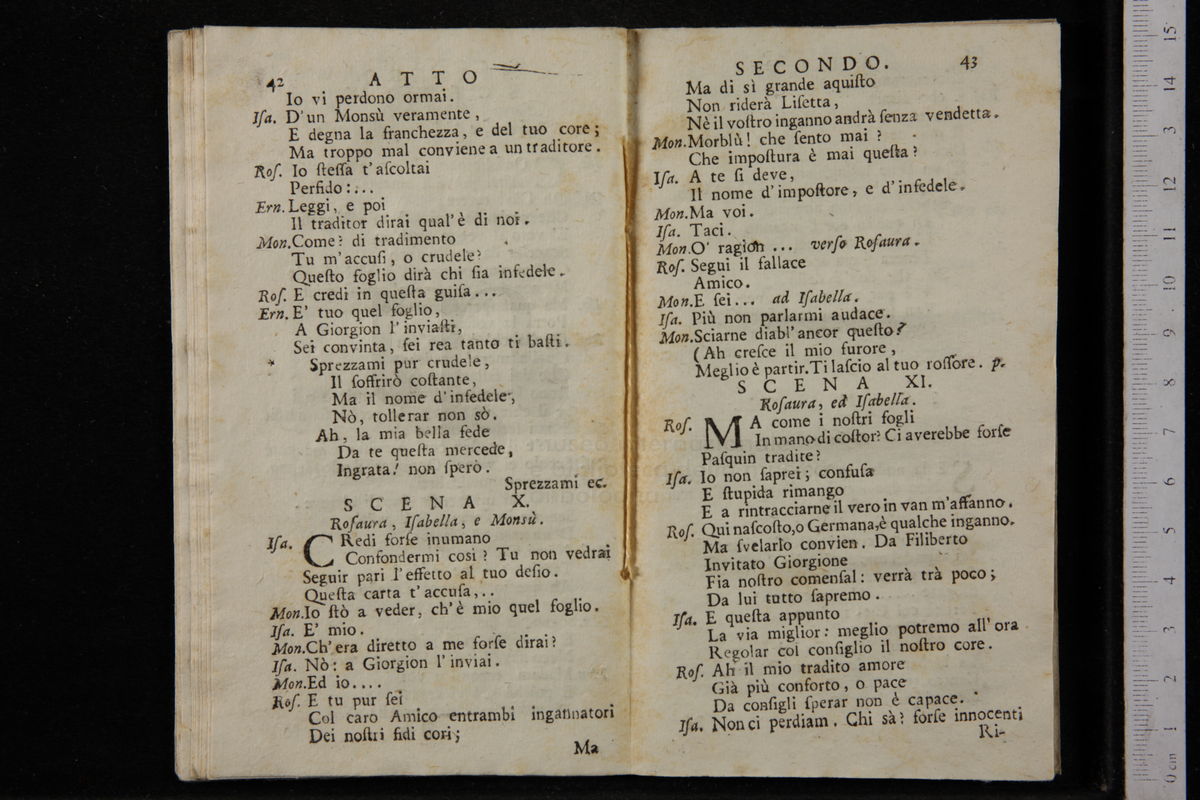 42 ATTO
Io vi perdono ormai.
Iſa. D'un Monsù veramente,
E degna la franchezza, e del tuo core;
Ma troppo mal conviene a un traditore.
Roſ. Io ſteſſa t'aſcoltai
Perfido:...
Ern. Leggi, e poi
Il traditor dirai qual'è di noi.
Mon. Come? di tradimento
Tu m'accuſi, o crudele?
Queſto foglio dirà chi ſia infedele.
Roſ. E credi in queſta guiſa...
Ern. E' tuo quel foglio,
A Giorgion l'inviaſti,
Sei convinta, ſei rea tanto ti baſti.
* Sprezzami pur crudele,
Il ſoffrirò coſtante,
Ma il nome d'infedele,
Nò, tollerar non sò.
Ah, la mia bella fede
Da te queſta mercede,
Ingrata! non ſperò.
Sprezzami ec.
SCENA X.
Roſaura, Iſabella, e Monsù.
Iſa. CRedi forſe inumano
Confondermi così? Tu non vedrai
Seguir pari l'effetto al tuo deſio.
Queſta carta t'accuſa,..
Mon. Io ſtò a veder, ch'è mio quel foglio.
Iſa. E' mio.
Mon. Ch'era diretto a me forſe dirai?
Iſa. Nò: a Giorgion l'inviai.
Mon. Ed io....
Roſ. E tu pur ſei
Col caro Amico entrambi ingannatori
Dei noſtri fidi cori;
Ma
SECONDO. 43
Ma di sì grande aquiſto
Non riderà Liſetta,
Nè il voſtro inganno andrà ſenza vendetta.
Mon. Morblù! che ſento mai?
Che impoſtura è mai queſta?
Iſa. A te ſi deve,
Il nome d'impoſtore, e d'infedele.
Mon. Ma voi.
Iſa. Taci.
Mon. O' ragion ... verſo Roſaura.
Roſ. Segui il fallace
Amico.
Mon. E ſei... ad Iſabella.
Iſa. Più non parlarmi audace.
Mon. Sciarne diabl'ancor queſto?
(Ah creſce il mio furore,
Meglio è partir. Ti laſcio al tuo roſſore. p.
SCENA XI.
Roſaura, ed Iſabella.
Roſ. MA come i noſtri fogli
In mano di coſtor? Ci averebbe forſe
Paſquin tradite?
Iſa. Io non ſaprei; confuſa
E ſtupida rimango
E a rintracciarne il vero in van m'affanno.
Roſ. Qui naſcoſto, o Germana, è qualche inganno.
Ma ſvelarlo convien. Da Filiberto
Invitato Giorgione
Fia noſtro comenſal: verrà trà poco;
Da lui tutto ſapremo.
Iſa. E queſta appunto
La via miglior: meglio potremo all'ora
Regolar col conſiglio il noſtro core.
Roſ. Ah il mio tradito amore
Già più conforto, o pace
Da conſigli ſperar non è capace.
Iſa. Non ci perdiam. Chi sà? forſe innocenti
Ri-